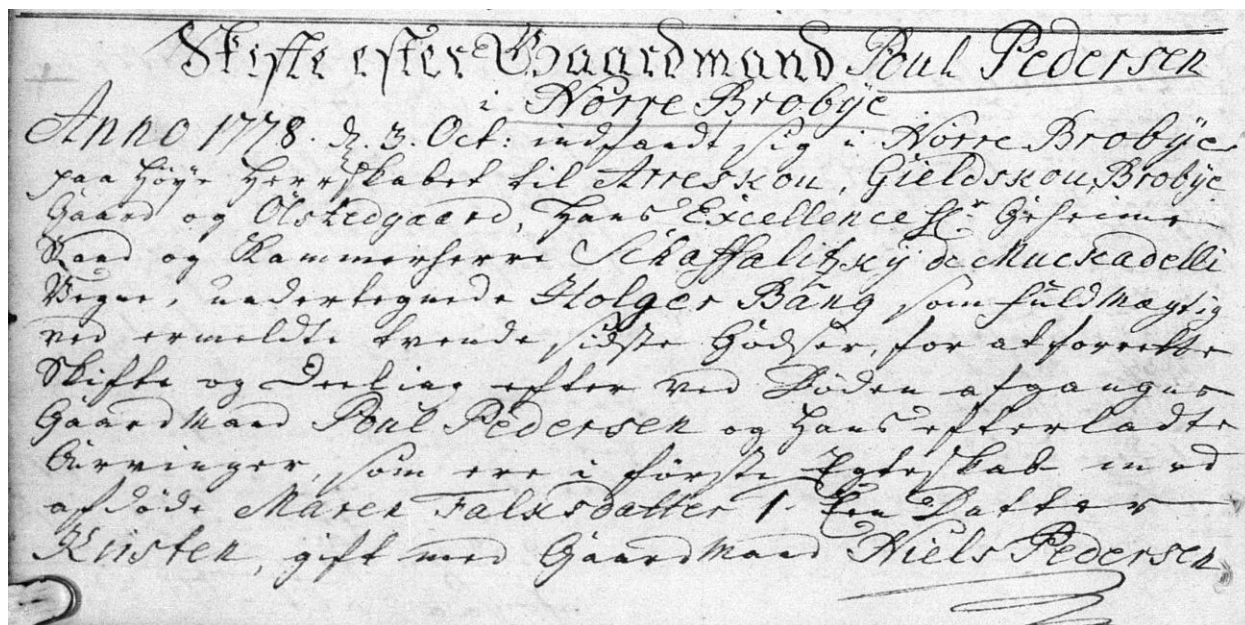 Skifte efter Gaardmand Poul Pedersen
i Nörre Brobÿe
Anno 1778. d. 3. Oct: indfandt sig i Nörre Brobÿe
paa Höÿe Herrskabet til Arreskou, Gieldskou, Brobÿe
Gaard og Ölstedgaard, Hans Excellence Hr. Geheime
Raad og Kammerherre Schaffalitzkÿ de Muckadelli
Vegne, undertegnede Holger Bang som fuldmægtig
ved ermeldte tvende sidste Godser, for at forrette
Skifte og Deeling efter ved Döden afgangne
Gaardmand Poul Pedersen og Hans efterladte
Arvinger, som ere i förste Egteskab med
afdöde Maren Falksdatter 1. Een Datter
Kirsten, gift med Gaardmand Niels Pedersen